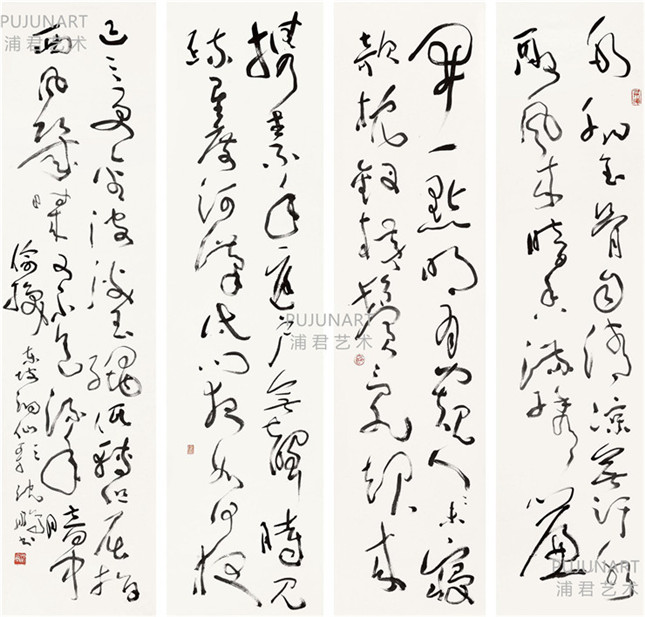 冰肌玉骨自清凉無汗水
殿風来暗香满绣簾
開一點明月窺人人未寝
欹枕钗横鬓亂起来
携素手庭户無聲時見
疏星渡河漢试问夜如何夜
已三更金波淡玉绳低轉但屈指
西風幾時来又不道流年暗中
偷换
东坡洞仙歌 沈鹏书
PUJUNART
浦君艺术
PUJUNART
浦君艺术
PUJUNART
浦君艺术